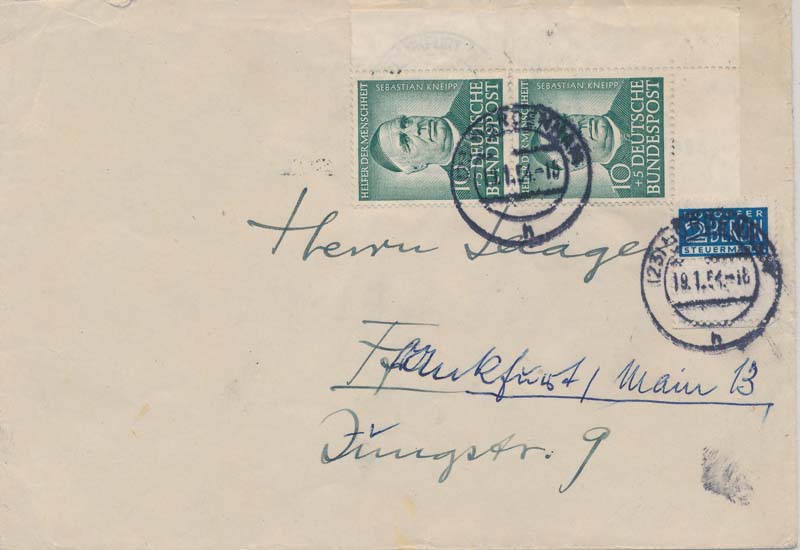 SEBASTIAN KNEIPP
HELFER DER MENSCHHEIT
10+5 DEUTSCHE BUNDESPOST
SEBASTIAN KNEIPP
HELFER DER MENSCHHEIT
10+5 DEUTSCHE BUNDESPOST
NOTOPFER
2 BERLIN
STEUERMARKE
19.1.54.-18
h
(23)
19.1.54.-18
h
Herrn Saager
Frankfurt/Main 13
Jungstr. 9